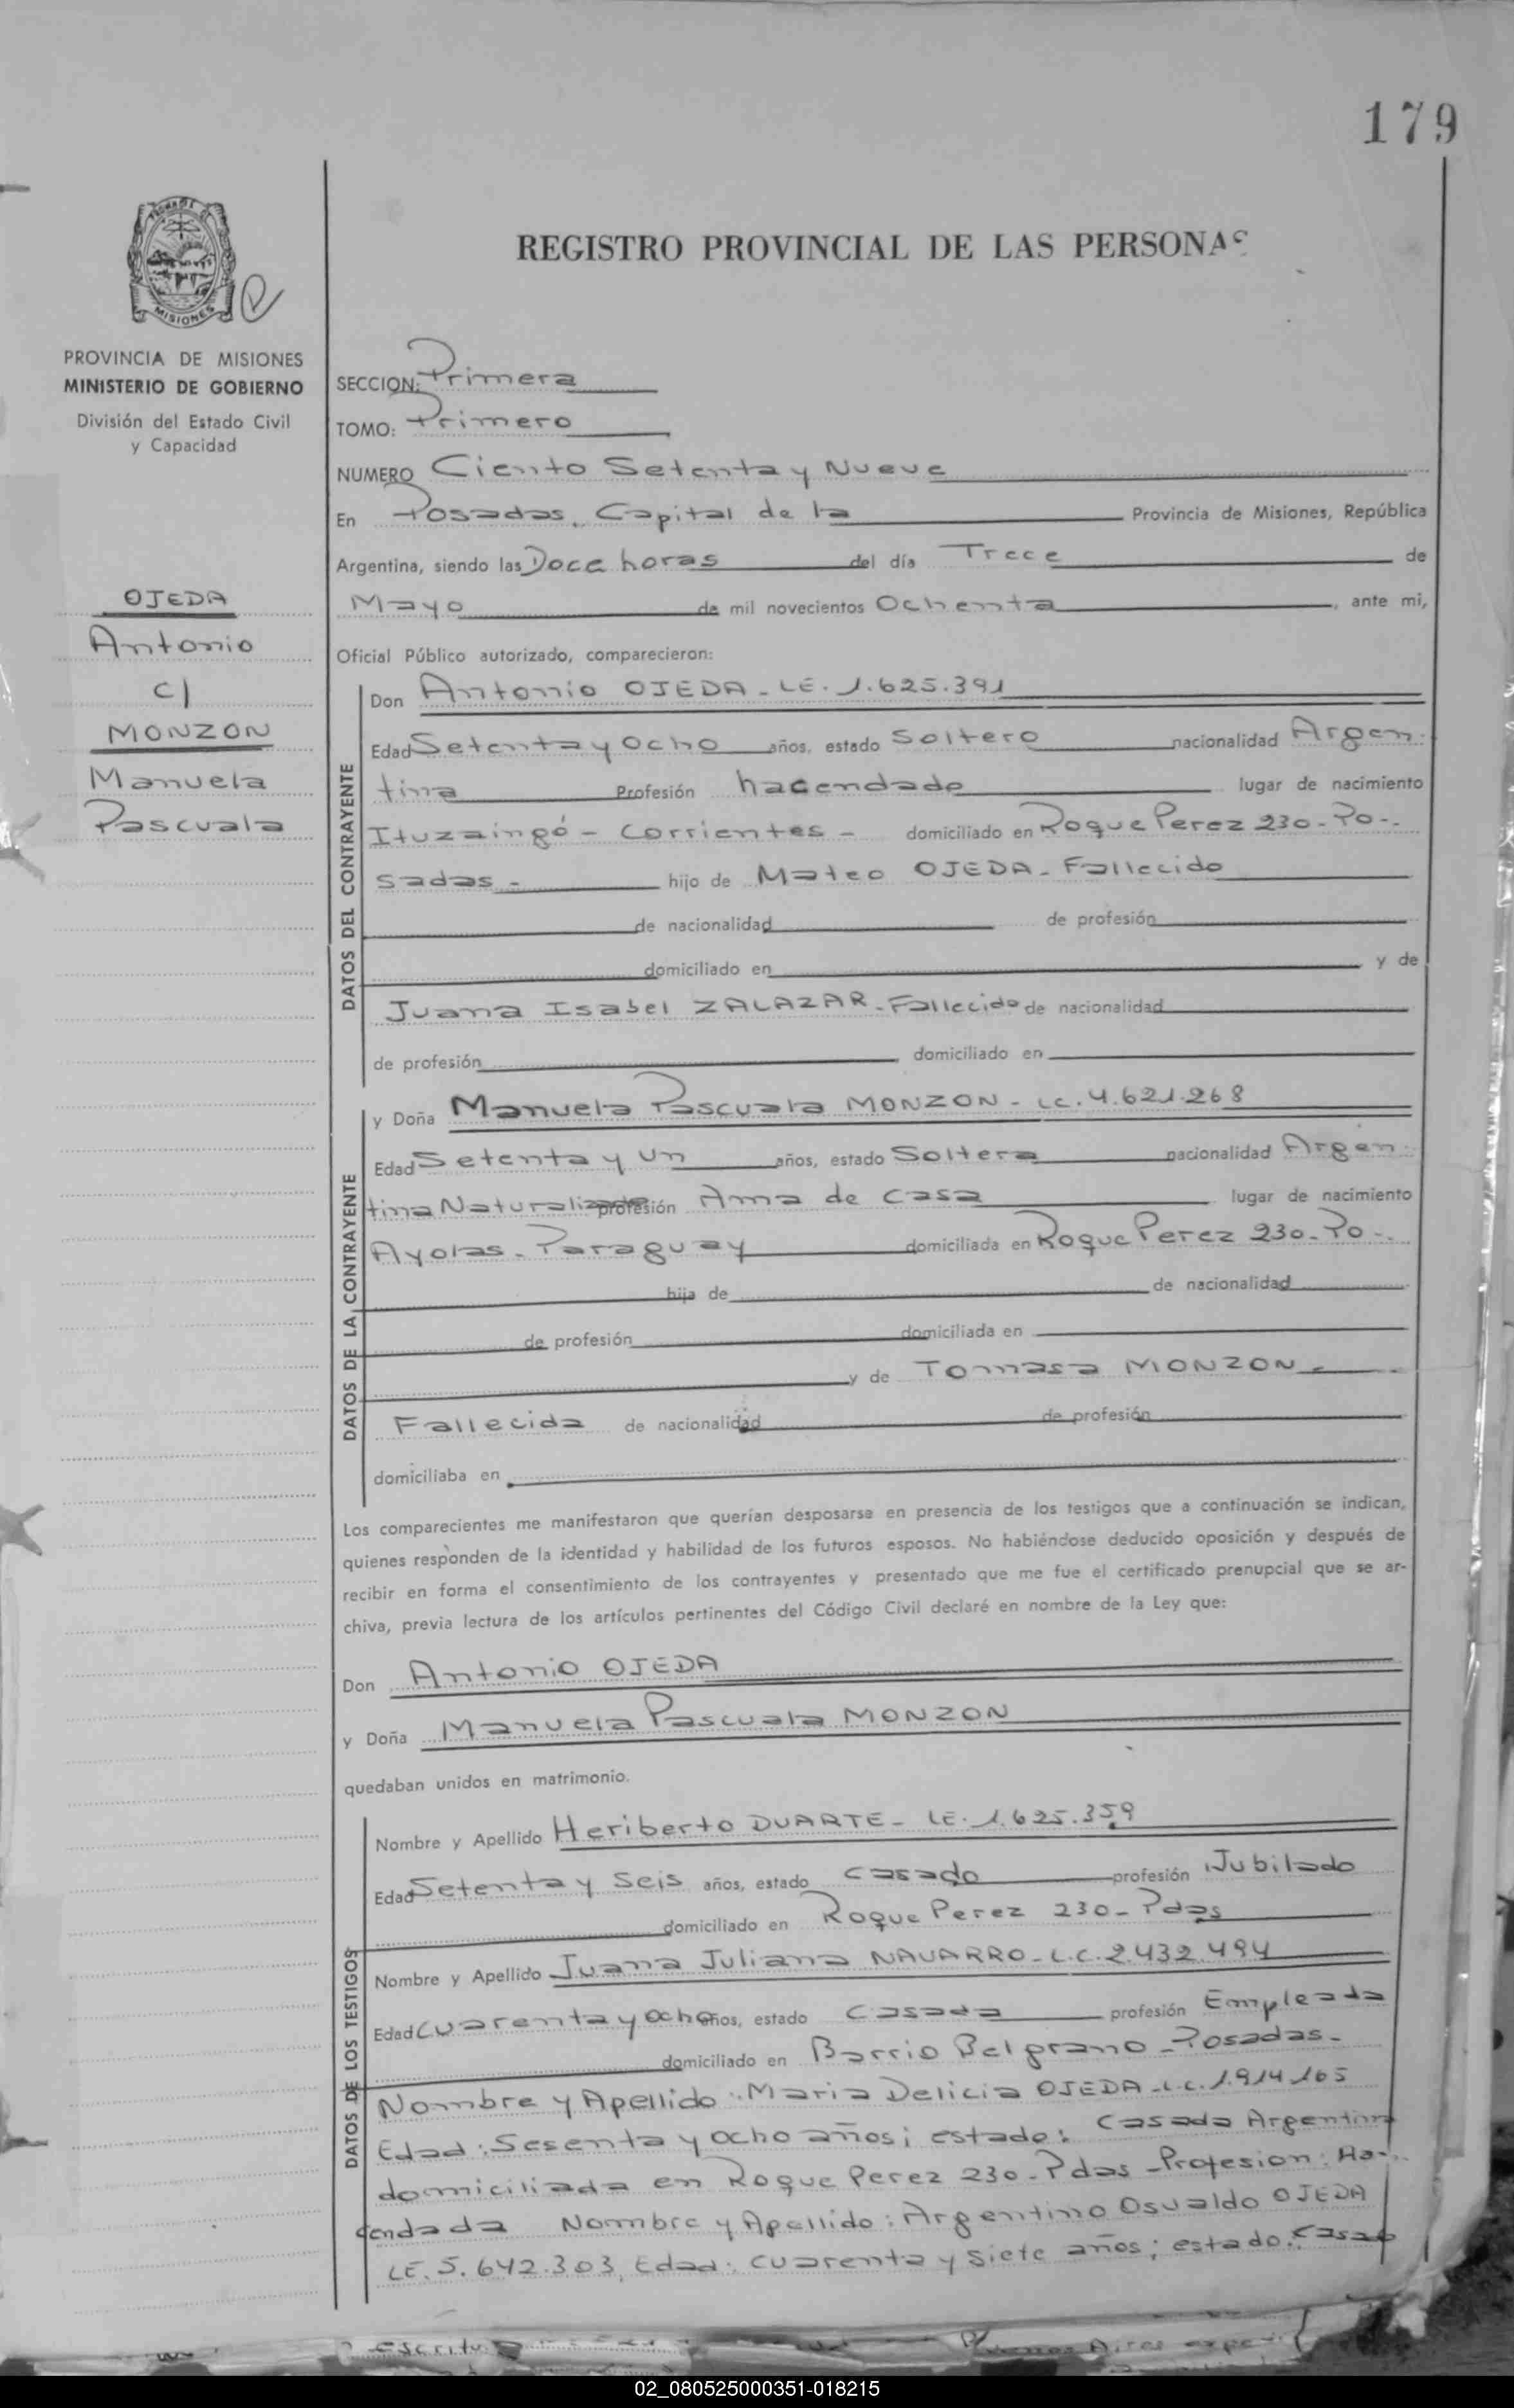 179
REGISTRO PROVINCIAL DE LAS PERSONAS
MISIONES
PROVINCIA DE MISIONES
MINISTERIO DE GOBIERNO
División del Estado Civil
y Capacidad
OJEDA
Antonio
c/
MONZON
Manuela
Pascuala
SECCION: Primera
TOMO: Primero
NUMERO Ciento Setenta y Nueve
En Posadas, Capital de la Provincia de Misiones, República
Argentina, siendo las Doce horas del día Trece de
Mayo de mil novecientos Ochenta, ante mi,
Oficial Público autorizado, comparecieron:
DATOS DEL CONTRAYENTE
Don Antonio OJEDA - LE. 1.625.391
Edad Setenta y Ocho años, estado Soltero nacionalidad Argen-
tina Profesión hacendado lugar de nacimiento
Ituzaingó - Corrientes - domiciliado en Roque Perez 230 - Po-
sadas - hijo de Mateo OJEDA - Fallecido
de nacionalidad de profesión
domiciliado en y de
Juana Isabel ZALAZAR - Fallecido de nacionalidad
de profesión domiciliado en
DATOS DE LA CONTRAYENTE
y Doña Manuela Pascuala MONZON - LC. 4.621.268
Edad Setenta y Un años, estado Soltera nacionalidad Argen-
tina Naturalizada profesión Ama de Casa lugar de nacimiento
Ayolas - Paraguay domiciliada en Roque Perez 230 - Po-
hija de de nacionalidad
de profesión domiciliada en
y de Tomasa MONZON -
Fallecida de nacionalidad de profesión
domiciliaba en
Los comparecientes me manifestaron que querían desposarse en presencia de los testigos que a continuación se indican,
quienes responden de la identidad y habilidad de los futuros esposos. No habiéndose deducido oposición y después de
recibir en forma el consentimiento de los contrayentes y presentado que me fue el certificado prenupcial que se ar-
chiva, previa lectura de los artículos pertinentes del Código Civil declaré en nombre de la Ley que:
Don Antonio OJEDA
y Doña Manuela Pascuala MONZON
quedaban unidos en matrimonio.
DATOS DE LOS TESTIGOS
Nombre y Apellido Heriberto DUARTE - LE. 1.625.359
Edad Setenta y Seis años, estado Casado profesión Jubilado
domiciliado en Roque Perez 230 - Pdas
Nombre y Apellido Juana Juliana NAVARRO - L.C. 2.432.494
Edad Cuarenta y ocho años, estado Casada profesión Empleada
domiciliado en Barrio Belgrano - Posadas -
Nombre y Apellido: Maria Delicia OJEDA - L.C. 1.914.165
Edad: Sesenta y ocho años; estado: Casada Argentina
domiciliada en Roque Perez 230 - Pdas - Profesion: Ha-
cendada Nombre y Apellido: Argentino Osvaldo OJEDA
LE. 5.642.303, Edad: Cuarenta y Siete años; estado: Casado
02_080525000351-018215